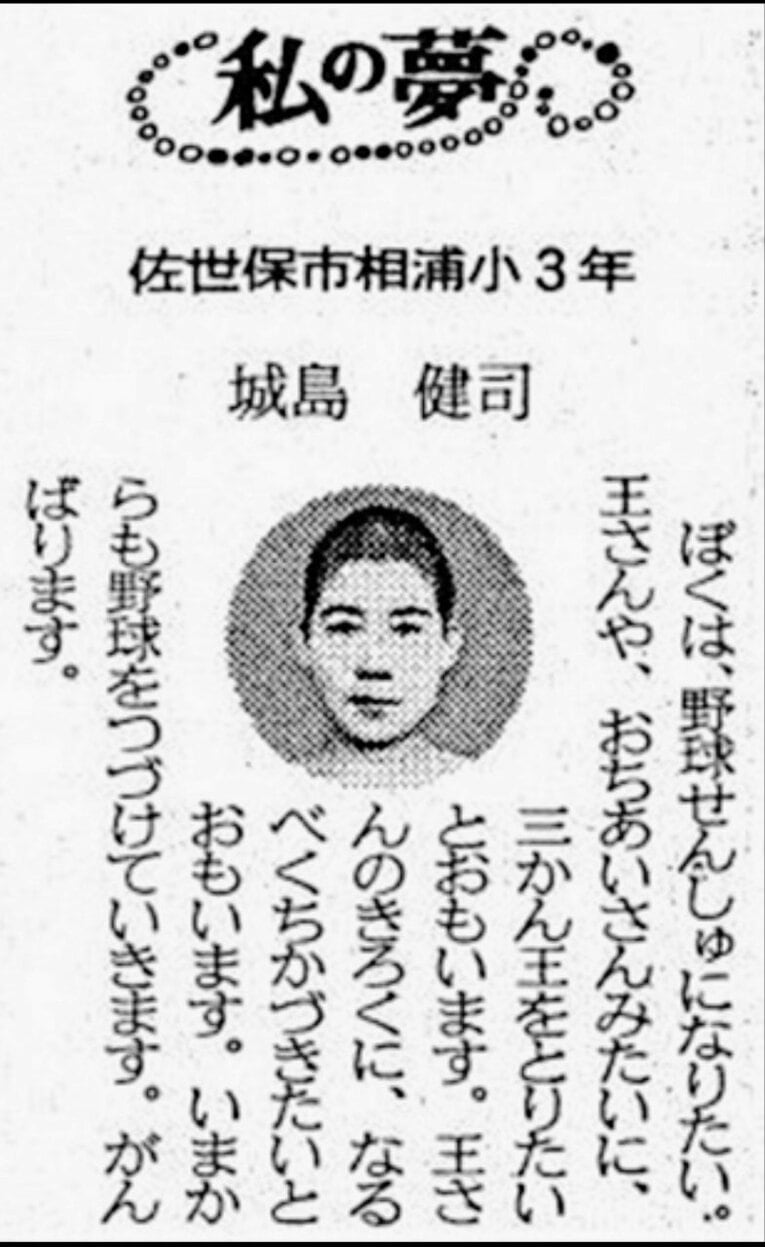 私の夢
佐世保市相浦小3年
城島　健司
ぼくは、野球せんしゅになりたい。
王さんや、おちあいさんみたいに、
三かん王をとりたい
とおもいます。王さ
んのきろくに、なる
べくちかづきたいと
おもいます。いまか
らも野球をつづけていきます。がん
ばります。